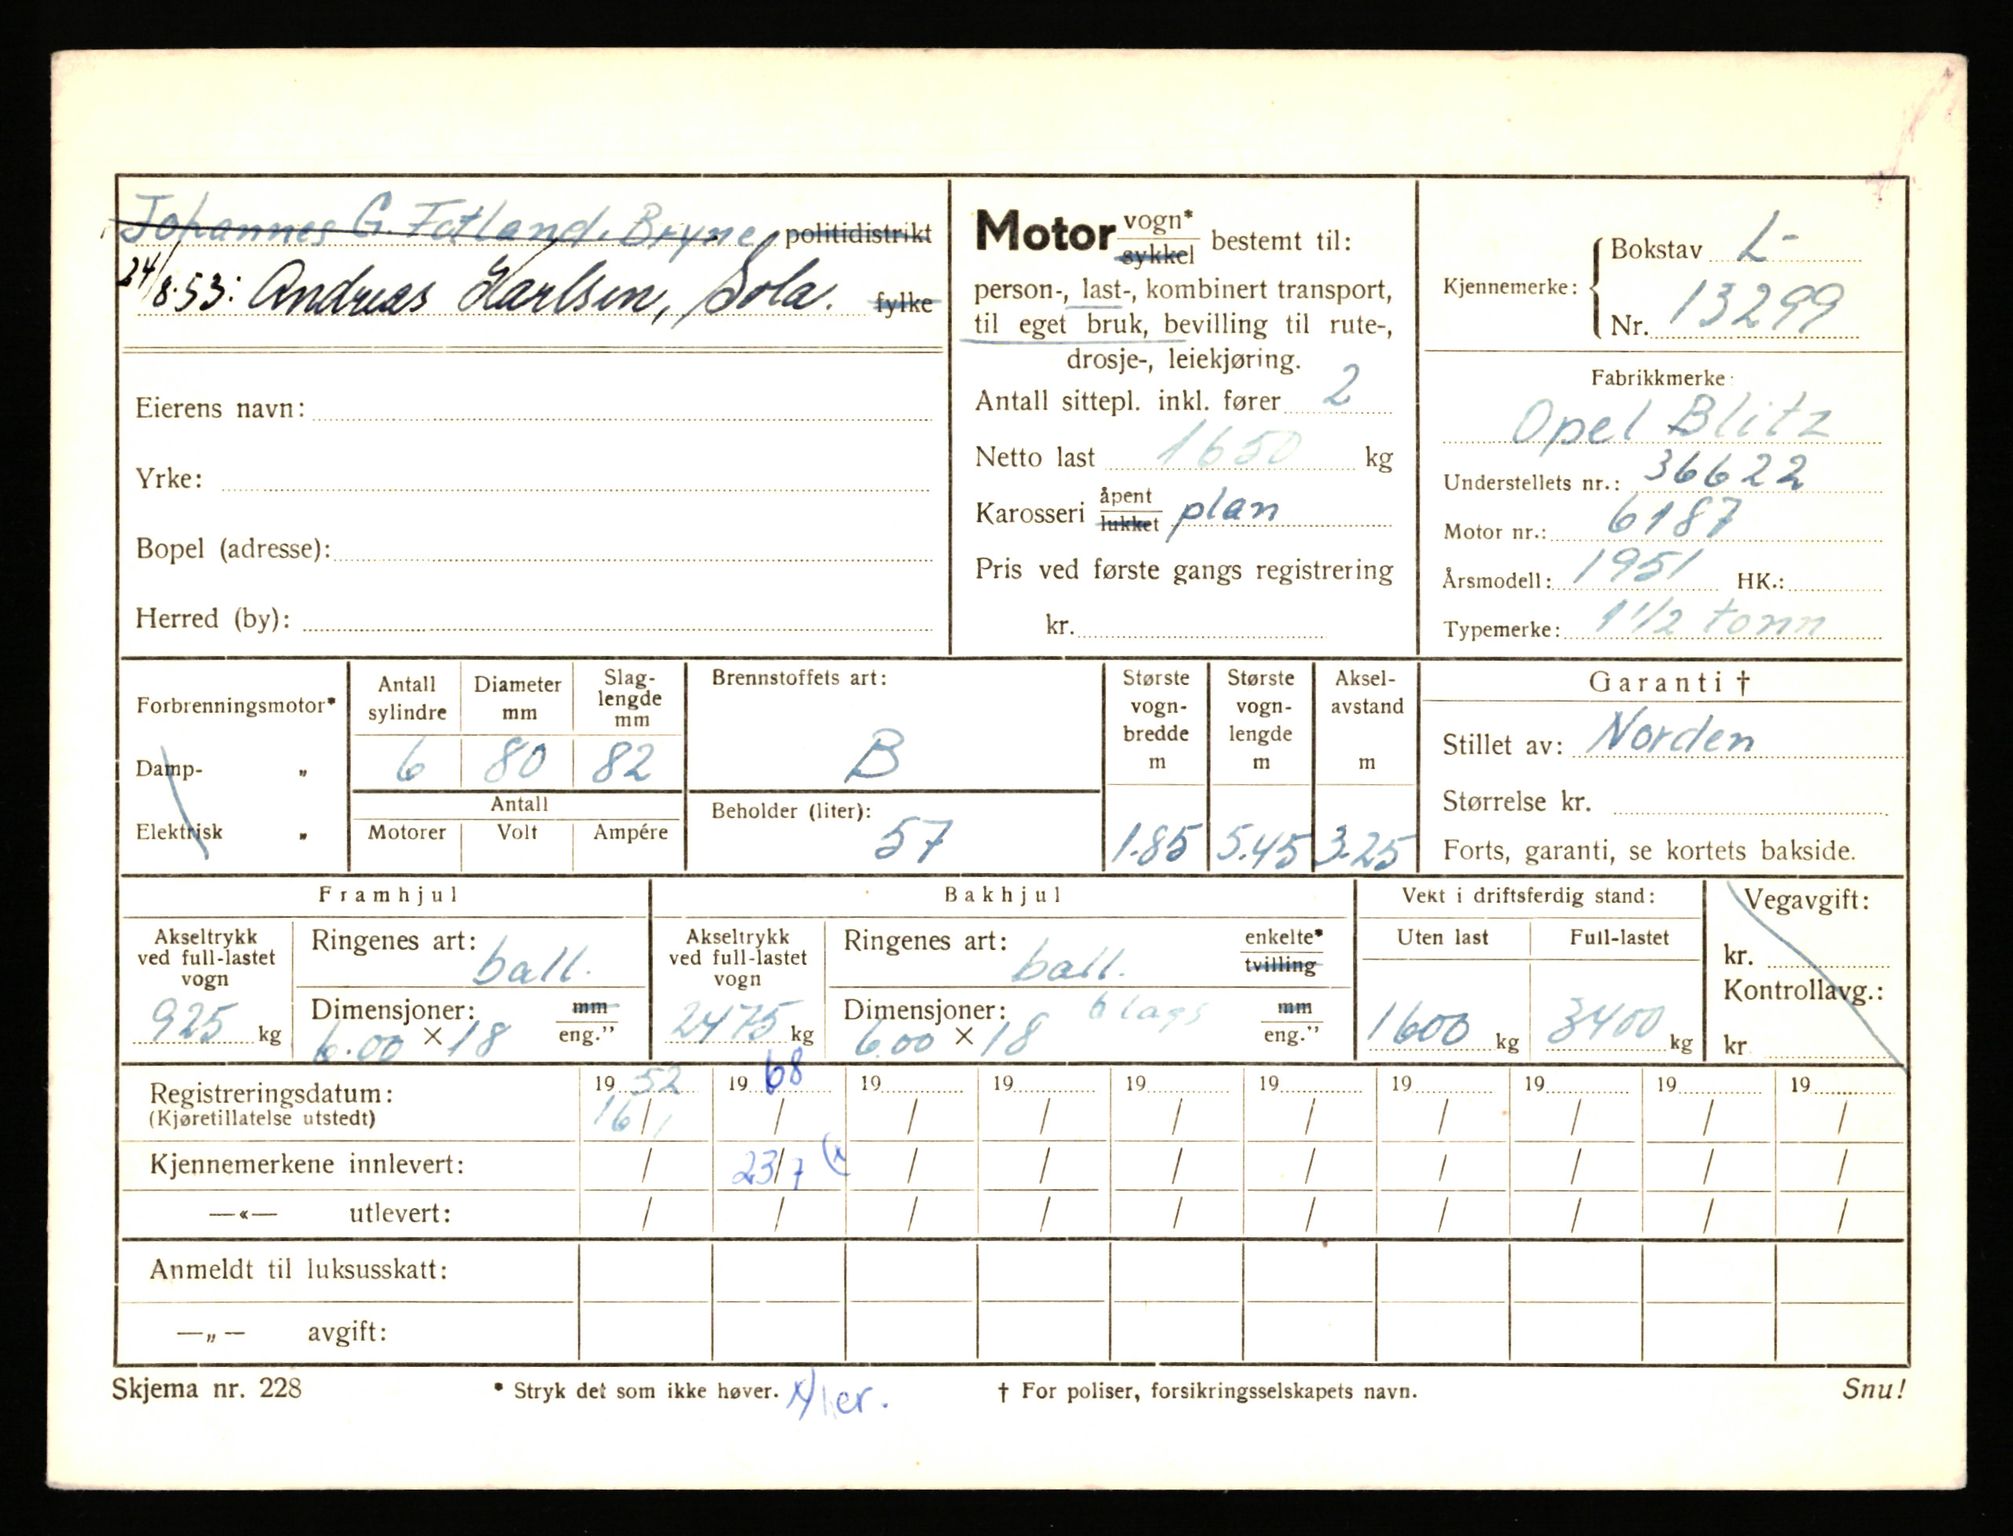 Johannes G. Fotland, Bryne politidistrikt
24/8.53: Andreas Karlsen, Sola. fylke
Eierens navn:
Yrke:
Bopel (adresse):
Herred (by):
Motor vogn* sykkel bestemt til:
person-, last-, kombinert transport,
til eget bruk, bevilling til rute-,
drosje-, leiekjøring.
Antall sittepl. inkl. fører 2
Netto last 1650 kg
Karosseri åpent lukket plan
Pris ved første gangs registrering
kr.
Kjennemerke: Bokstav L-
Nr. 13299
Fabrikkmerke:
Opel Blitz
Understellets nr.: 36622
Motor nr.: 6187
Årsmodell: 1951 HK.:
Typemerke: 1 1/2 tonn
Forbrenningsmotor*
Damp- „
Elektrisk „
Antall sylindre Diameter mm Slag-lengde mm
6 80 82
Antall
Motorer Volt Ampére
Brennstoffets art:
B
Beholder (liter):
57
Største vogn-bredde m
1.85
Største vogn-lengde m
5.45
Aksel-avstand m
3.25
Garanti †
Stillet av: Norden
Størrelse kr.
Forts, garanti, se kortets bakside.
Framhjul
Akseltrykk ved full-lastet vogn
925 kg
Ringenes art: ball.
Dimensjoner: mm
6.00 × 18 eng.”
Bakhjul
Akseltrykk ved full-lastet vogn
2475 kg
Ringenes art: ball. enkelte* tvilling
Dimensjoner: 6 lags mm
6.00 × 18 eng.”
Vekt i driftsferdig stand:
Uten last Full-lastet
1600 kg 3400 kg
Vegavgift:
kr.
Kontrollavg.:
kr
Registreringsdatum: 1952 1968 19 19 19 19 19 19 19 19
(Kjøretillatelse utstedt) 16/1 / / / / / / / / /
Kjennemerkene innlevert: / 23/7 (x / / / / / / / /
—«— utlevert: / / / / / / / / / /
Anmeldt til luksusskatt:
—„— avgift:
Skjema nr. 228 * Stryk det som ikke høver. † For poliser, forsikringsselskapets navn. Snu!